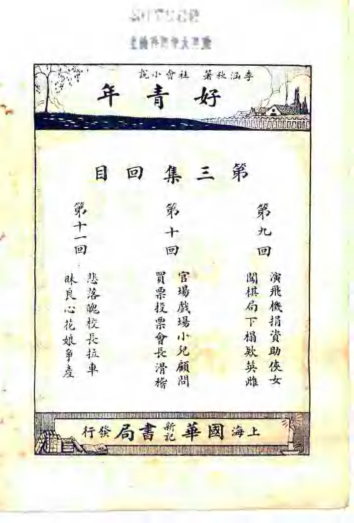 李涵秋著 社會小說
好青年
第三集回目
第九回
演飛機捐資助俠女
開棋局下榻欵英雌
第十回
官場戲場小兒顧問
買票投票會長滑稽
第十一回
悲落魄校長拉車
昧良心花娘爭產
上海國華新記書局發行